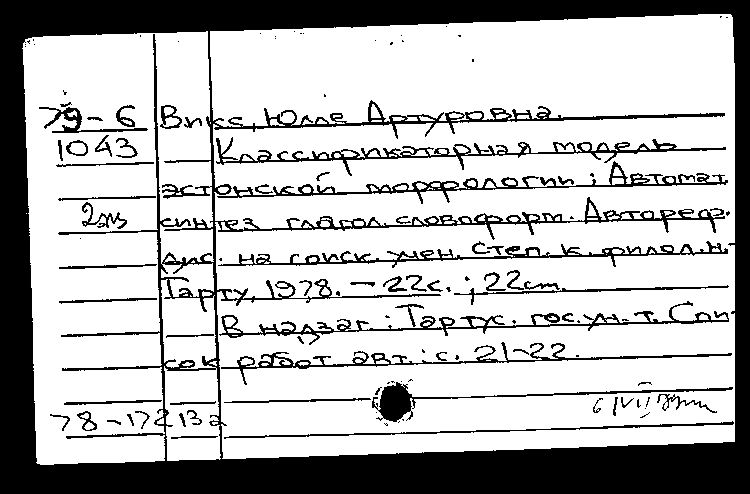 79-6 Викс, Юлле Артуровна.
1043 Классификаторная модель
эстонской морфологии; Автомат.
2 экз синтез глагол. словоформ. Автореф.
дис. на соиск. учен. степ. к. филол. н. -
Тарту, 1978. - 22 с.; 22 cm.
В надзаг.: Тартус. гос. ун-т. Спи-
сок работ авт.: с. 21-22.
78-17213а